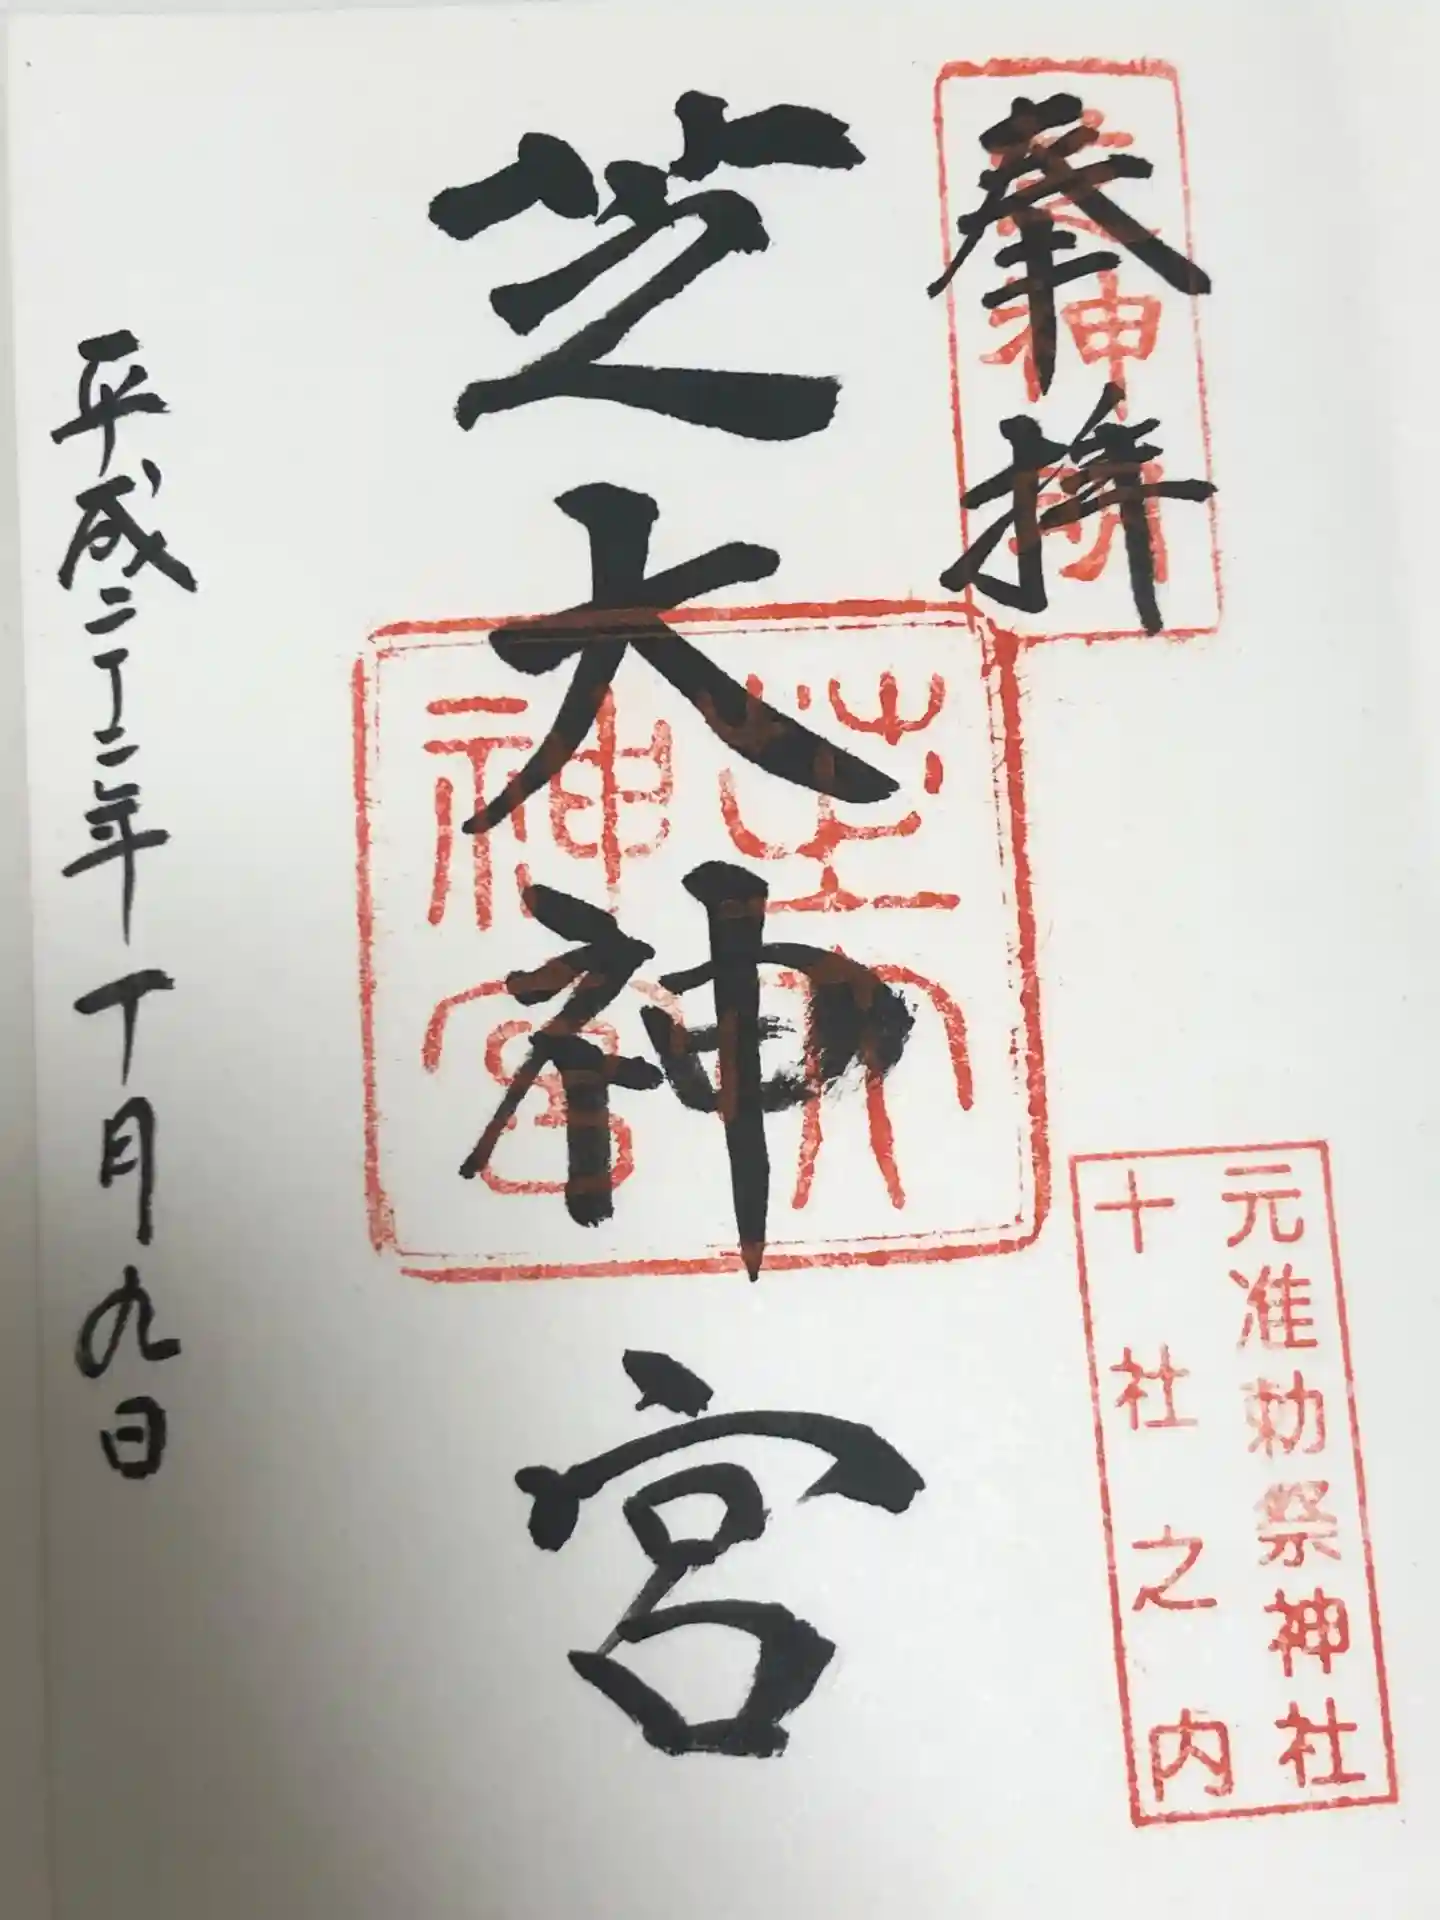 奉拝
芝神明
元准勅祭神社
十社之内
芝大神宮
芝大神宮
平成二十二年十月九日